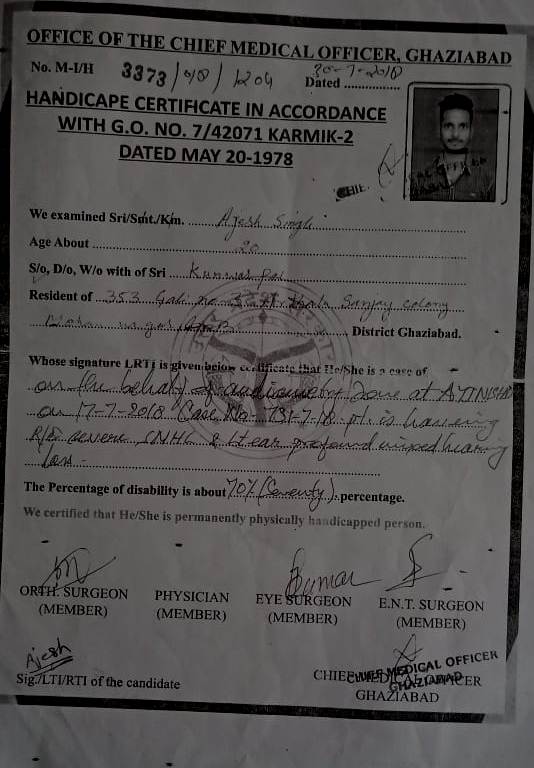 OFFICE OF THE CHIEF MEDICAL OFFICER, GHAZIABAD
No. M-I/H 3373/ /1209 Dated 30-7-2018
HANDICAPE CERTIFICATE IN ACCORDANCE
WITH G.O. NO. 7/42071 KARMIK-2
DATED MAY 20-1978
We examined Sri/Smt./Km. Ajesh Singh
Age About 20
S/o, D/o, W/o with of Sri Kunwar Pal
Resident of 353 Gali no 3 Sanjay colony
District Ghaziabad.
Whose signature LRTI is given below certificate that He/She is a case of
on the behalf of audiometry done at AYJNISHD
on 17-7-2018 Case No- 731-7-18. pt. is having
R/E severe SNHL & Lt ear profound mixed hearing
loss.
The Percentage of disability is about 70% (Seventy) percentage.
We certified that He/She is permanently physically handicapped person.
ORTH. SURGEON PHYSICIAN EYE SURGEON E.N.T. SURGEON
(MEMBER) (MEMBER) (MEMBER) (MEMBER)
Kumar
Ajesh
Sig./LTI/RTI of the candidate
CHIEF MEDICAL OFFICER
GHAZIABAD
CHIEF MEDICAL OFFICER
GHAZIABAD